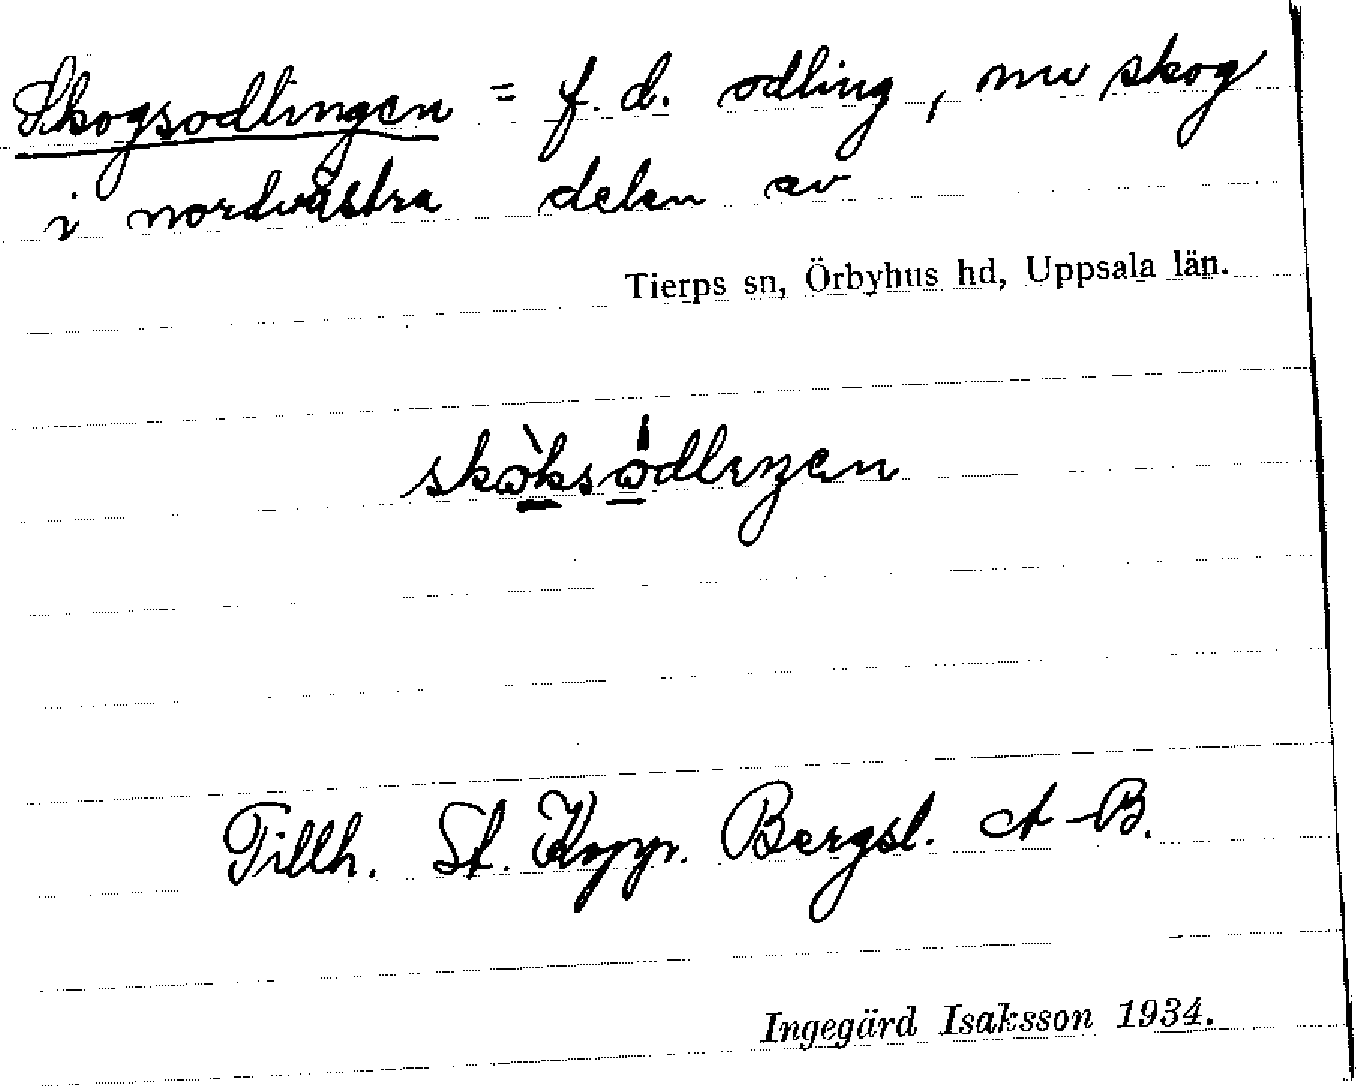 Skogsodlingen = f. d. odling, nu skog
i nordvästra delen av
Tierps sn, Örbyhus hd, Uppsala län.
skòksódlıŋen
Tillh. St. Kopp. Bergsl. A-B.
Ingegärd Isaksson 1934.